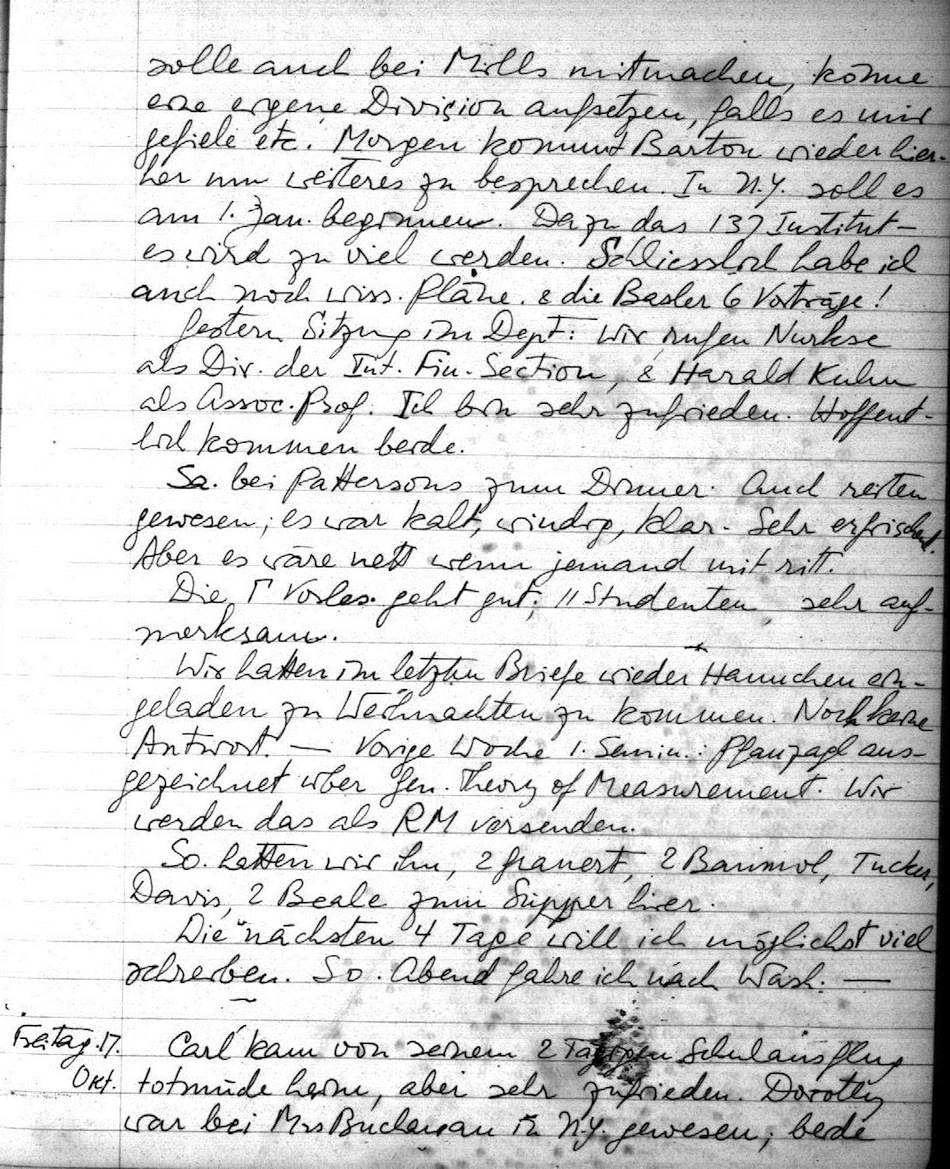 solle auch bei Mills mitmachen, könne
eine eigene Division aufsetzen, falls es mir
gefiele etc. Morgen kommt Barton wieder hier-
her um weiteres zu besprechen. In N.Y. soll es
am 1. Jan. beginnen. Dazu das 137 Institut –
es wird zu viel werden. Schliesslich habe ich
auch noch wiss. Pläne. & die Basler 6 Vorträge!
Gestern Sitzung im Dept: Wir rufen Nurkse
als Dir. der Int. Fin. Section, & Harald Kuhn
als Assoc. Prof. Ich bin sehr zufrieden. Hoffent-
lich kommen beide.
Sa. bei Pattersons zum Dinner. Auch reiten
gewesen; es war kalt, windig, klar. Sehr erfrischend.
Aber es wäre nett wenn jemand mit ritt.
Die Γ Vorles. geht gut; 11 Studenten sehr auf-
merksam.
Wir hatten im letzten Briefe wieder Hannchen ein-
geladen zu Weihnachten zu kommen. Noch keine
Antwort. — Vorige Woche 1. Semin.: Pfanzagl aus-
gezeichnet über Gen. Theory of Measurement. Wir
werden das als RM versenden.
So. hatten wir ihn, 2 Grauert, 2 Baumol, Tucker,
Davis, 2 Beale zum Supper hier.
Die nächsten 4 Tage will ich möglichst viel
schreiben. So. Abend fahre ich nach Wash. —
Freitag 17. Carl kam von seinem 2 Tägigen Schulausflug
Okt. totmüde heim, aber sehr zufrieden. Dorothy
war bei Mrs Buchanan in N.Y. gewesen; beide